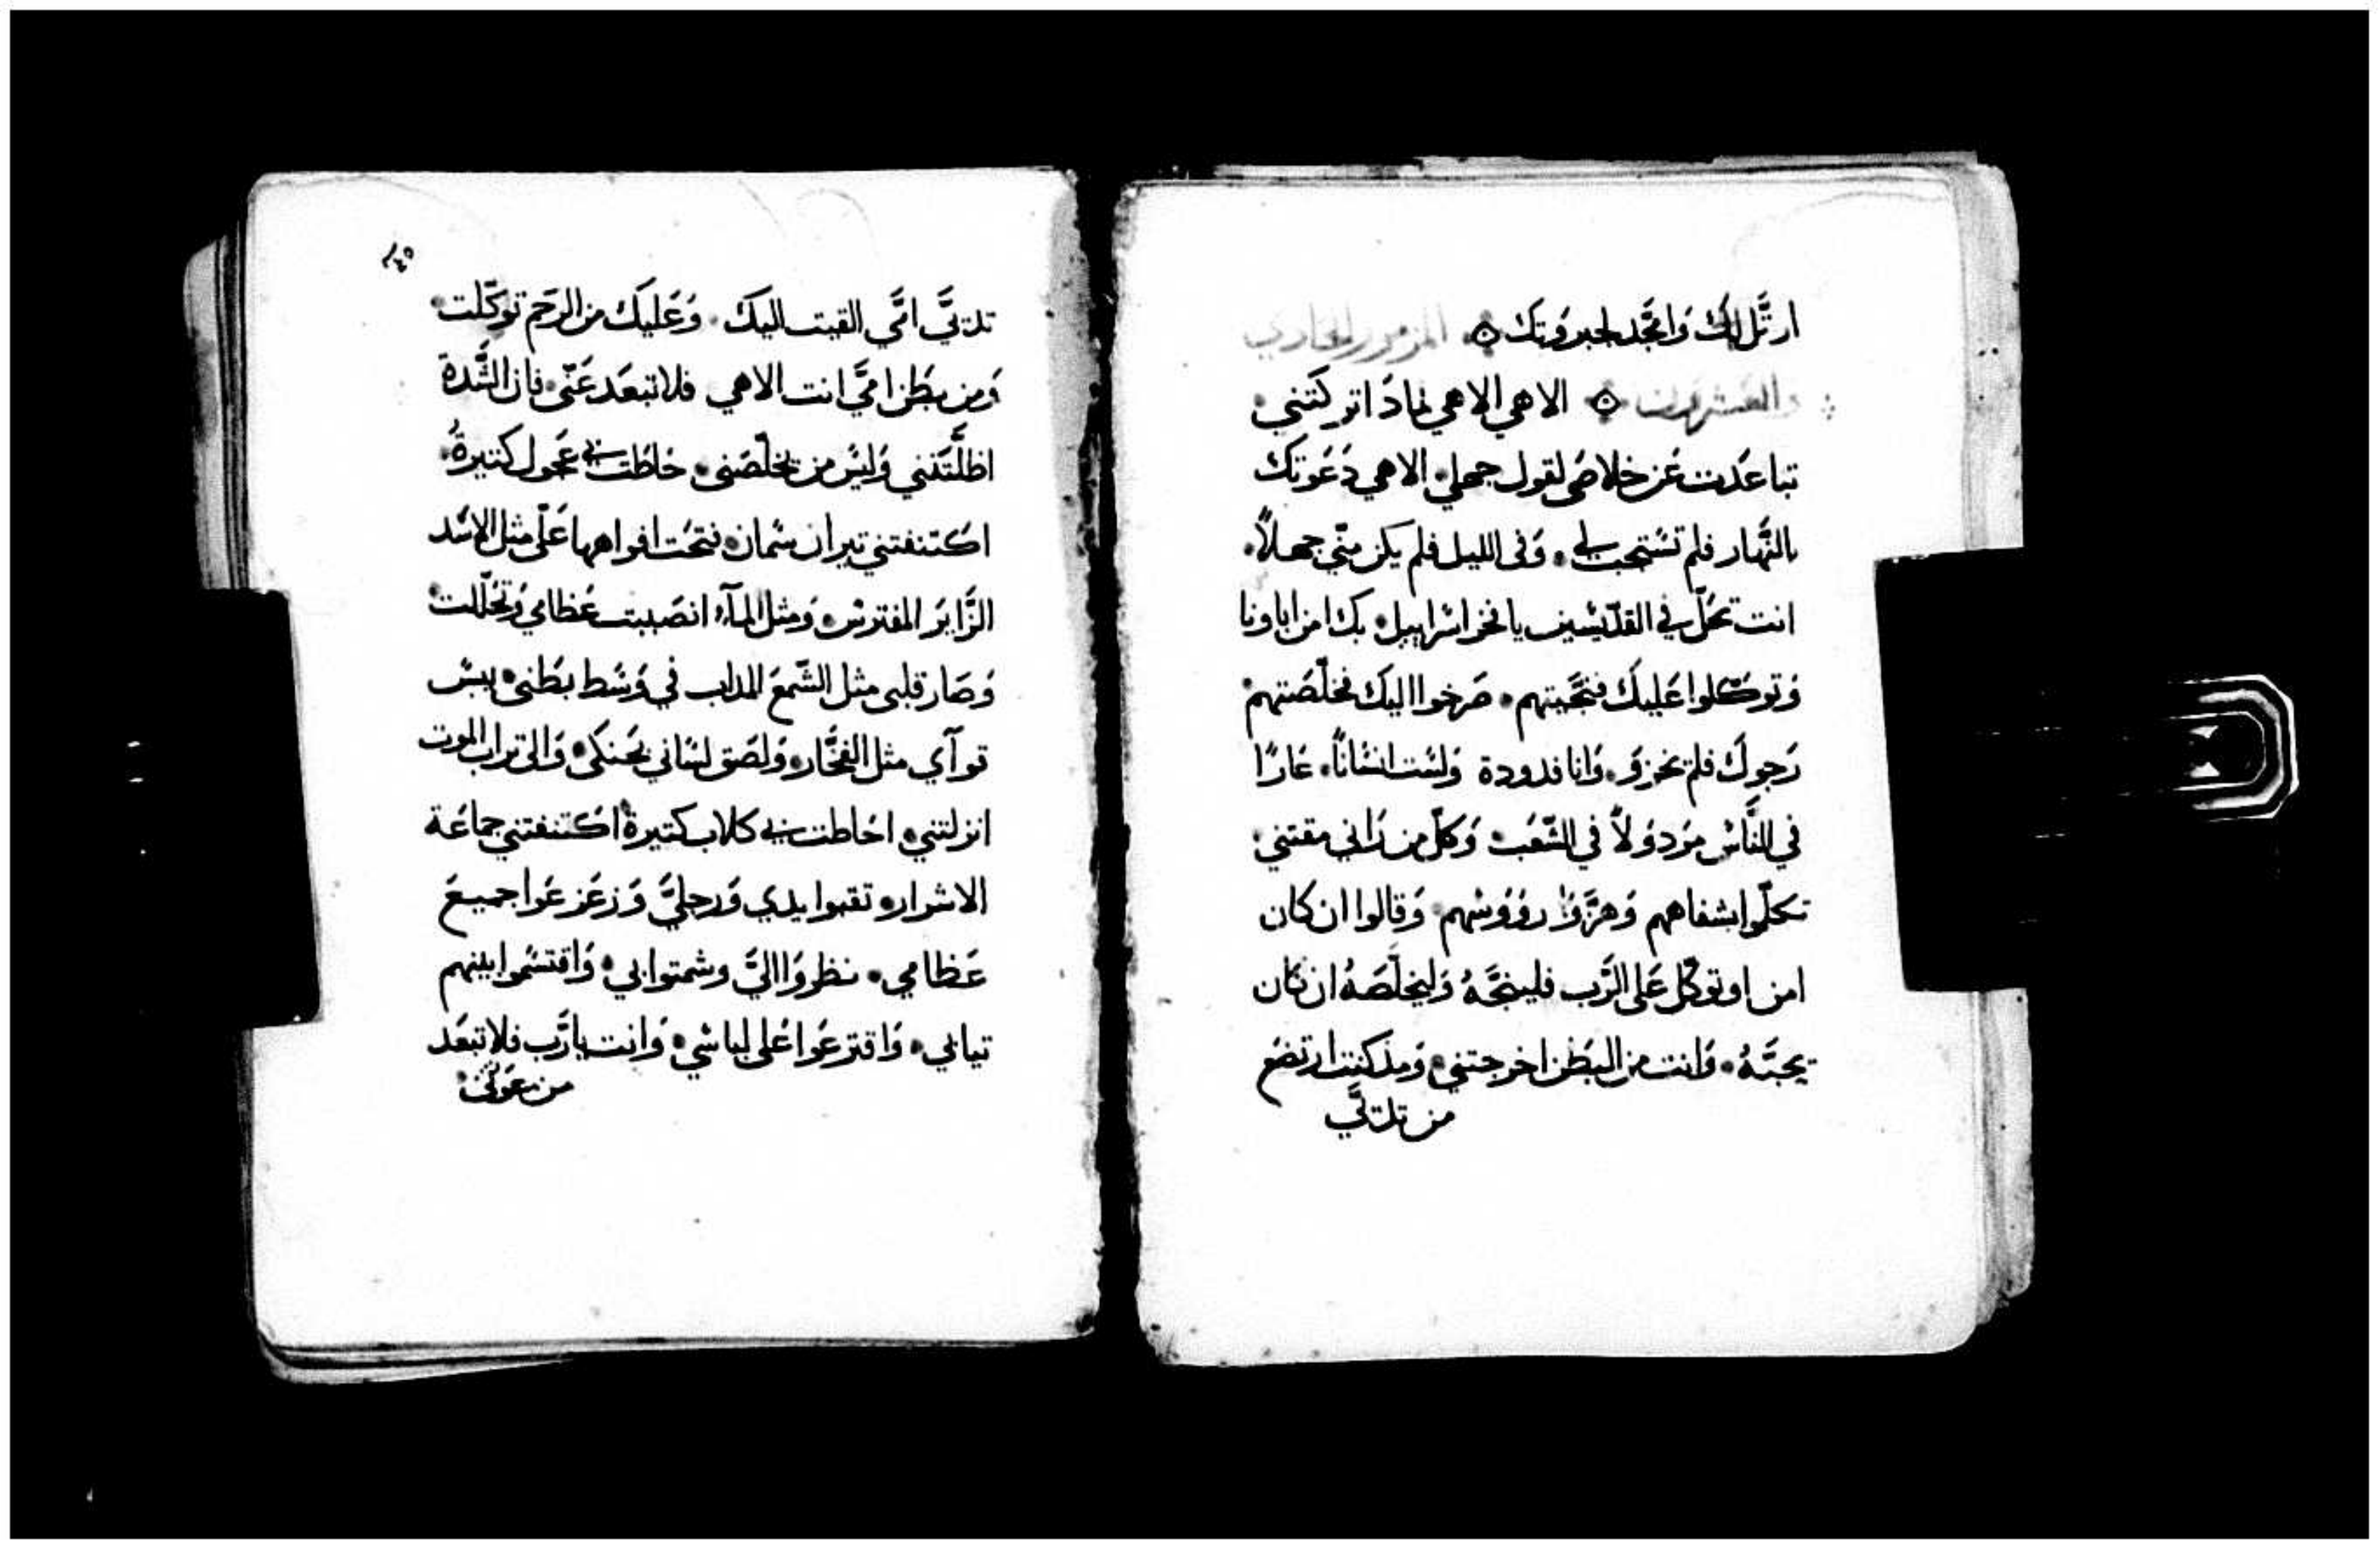 ارتَّل لك وَامجَّد لجبروَتك ۞ المزمور الحادي
والعشرون ۞ الاهي الاهي لماذَا تركتَني
تباعَدت عَن خلاصَي لقول جهلي الاهي دَعَوتك
بالنَّهار فلم تسْتجب لي وَفى الليل فلم يكن منّي جهلاً
انت تحَلّ في القدّيسْين يا فخر اسْراييل بك امن اباونا
وَتوكّلوا عَليك فنجَّيتهم صَرخوا اليك فخلّصَتهم
رَجوك فلم يخزوَ وَانا فدودة وَلسْت انسْاناً عَارًا
في النَّاسْ مرَدوَلاً في الشّعَب وَكلّ من رَاني مقتني
تكلّموا بشفاهم وَهزَّوَا روُوسْهم وَقالوا ان كان
امن او توكّل عَلى الرَّب فلينجَّهُ وَليخلّصَهُ ان كان
يحبَّهُ وَانت من البطَن اخرجتني وَمذ كنت ارتضَع
من تدتيَّ
تدتيَّ امَّي القيت اليك وَعَليك من الرَحم توكّلت
وَمن بطَن اميَّ انت الاهي فلا تبعَد عَنّي فان الشَّدة
اظلَّتني وَليسْ من يخلّصَني حَاطت بي عَجول كتيرةٌ
اكتنفتني تيران سْمان فتحَت افواهها عَلّي مثل الاسْد
الزَّاير المفترسْ وَمثل المآء انصَببت عَظامي وَتخلّلت
وَصَار قلبى مثل الشّمعَ المداب في وَسْط بطَنى يبسْ
قوآي مثل الفخَّار وَلصَق لسْاني بحَنكى وَالى تراب الموت
انزلتني احَاطت بي كلاب كتيرة اكتنفتني جماعَة
الاشرار تقبوا يدي وَرجليَّ وَزعَزعَوا جميعَ
عَظامي نظروَا اليَّ وشمتوا بي وَاقتسْموا بينهم
تيابي وَاقترعَوا عَلى لباسْي وَانت يا رَّب فلا تبعَد
من عَونى